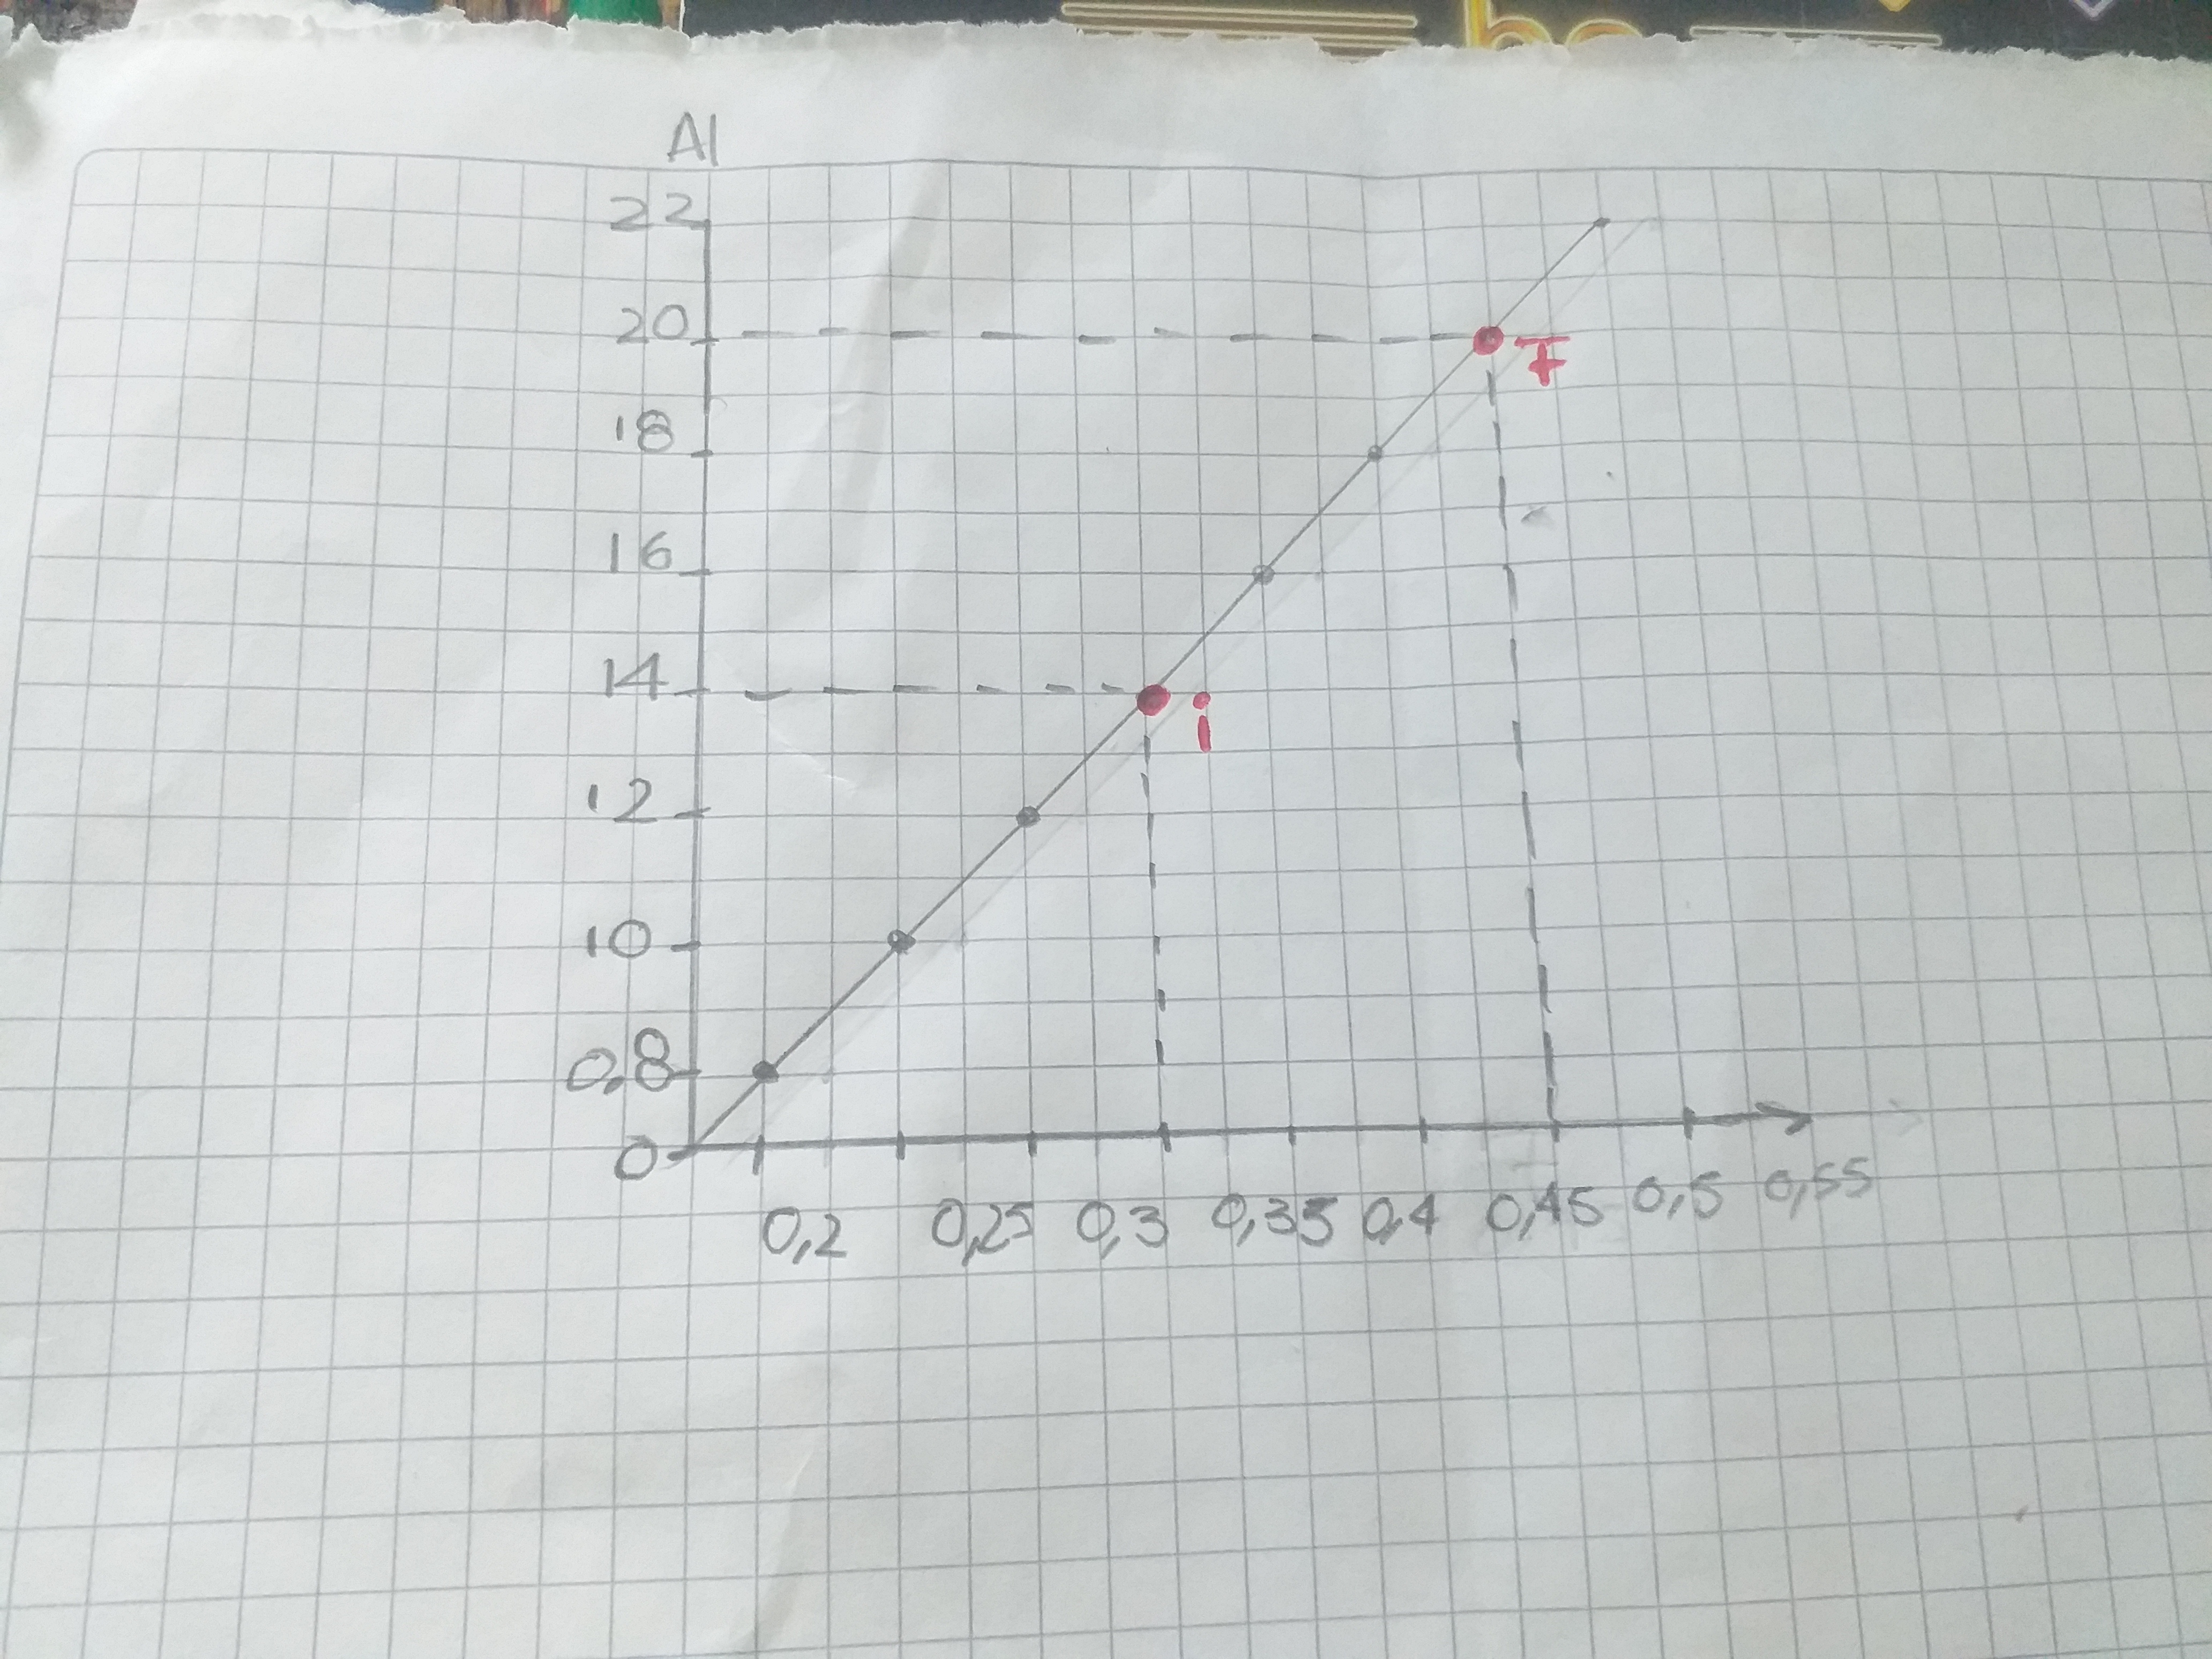 Al
22
20
F
18
16
14
i
12
10
0,8
0
0,2 0,25 0,3 0,35 0,4 0,45 0,5 0,55